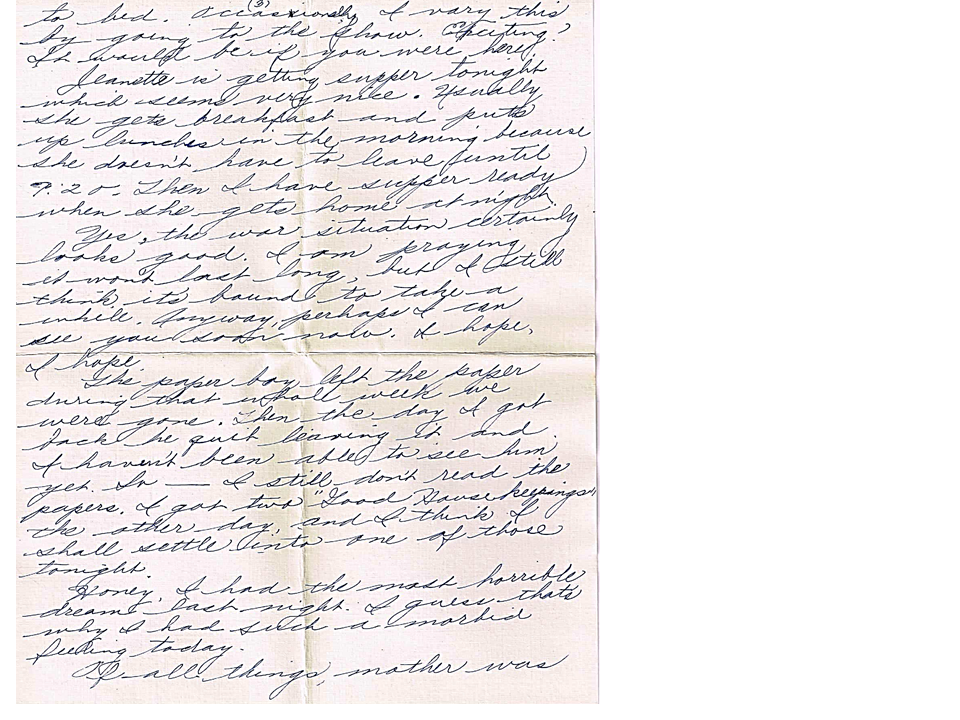 (3)
to bed. Occassionally I vary this
by going to the show. Exciting?
It would be if you were here.
Jeanette is getting supper tonight
which seems very nice. Usually
she gets breakfast and puts
up lunches in the morning because
she doesn't have to leave until
9:20. Then I have supper ready
when she gets home at night.
Yes, the war situation certainly
looks good. I am praying
it won't last long, but I still
think it's bound to take a
while. Anyway, perhaps I can
see you soon now. I hope,
I hope.
The paper boy left the paper
during that whole week we
were gone. Then the day I got
back he quit leaving it and
I haven't been able to see him
yet. So — I still don't read the
papers. I got two "Good Housekeepings"
the other day, and I think I
shall settle into one of those
tonight.
Honey, I had the most horrible
dream last night. I guess that's
why I had such a morbid
feeling today.
Of all things, mother was